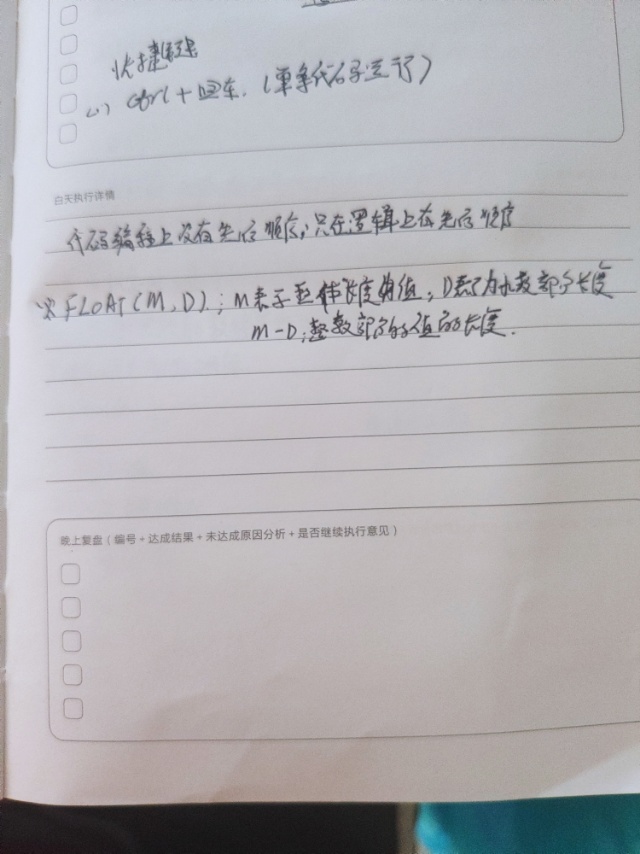 快捷键
(1) Ctrl + 回车. (单条代码运行)
白天执行详情
代码编程上没有先后顺序,只在逻辑上有先后顺序
※ FLOAT(M,D); M表示整体长度的值; D表示为小数部分长度
M-D;整数部分的值的长度.
晚上复盘(编号+达成结果+未达成原因分析+是否继续执行意见)